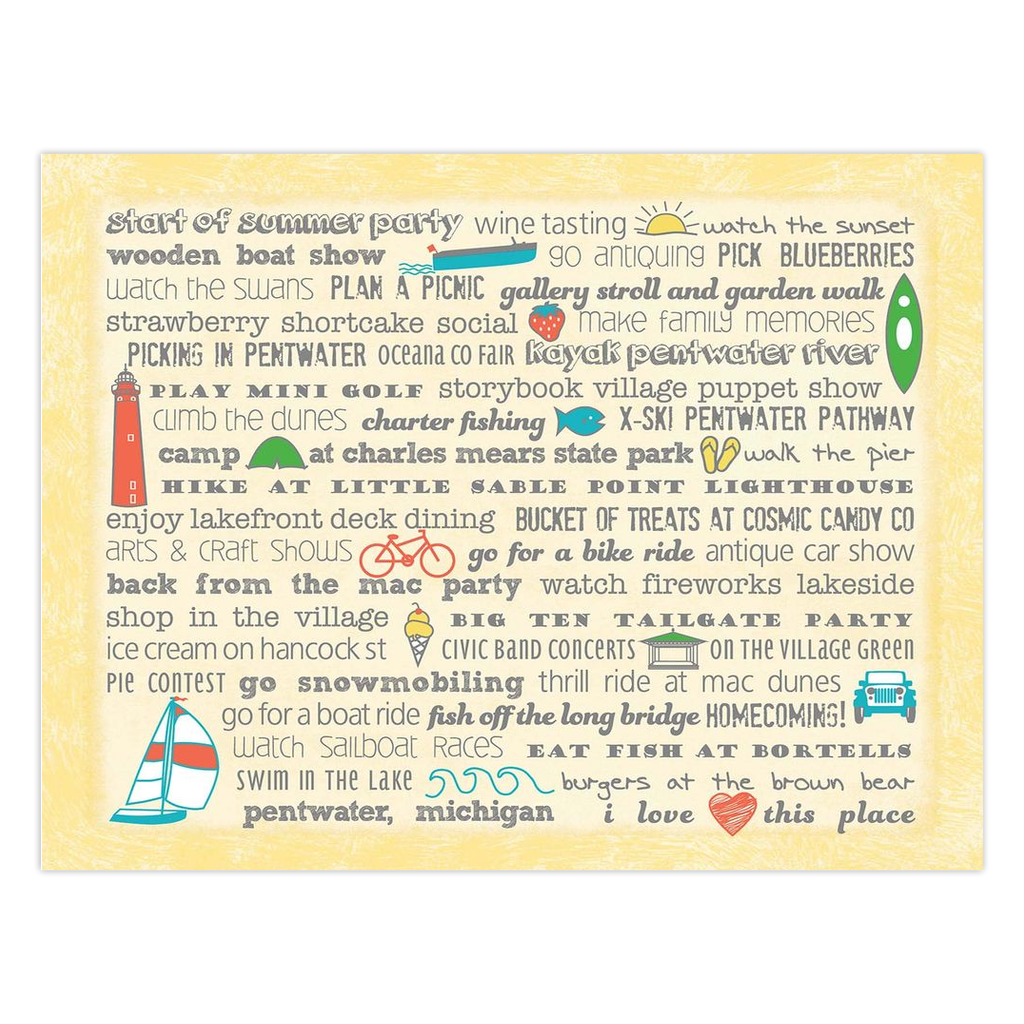 start of summer party wine tasting watch the sunset
wooden boat show go antiquing PICK BLUEBERRIES
watch the swans PLAN A PICNIC gallery stroll and garden walk
strawberry shortcake social make family memories
PICKING IN PENTWATER OCEANA CO FAIR kayak pentwater river
PLAY MINI GOLF storybook village puppet show
climb the dunes charter fishing X-SKI PENTWATER PATHWAY
camp at charles mears state park walk the pier
HIKE AT LITTLE SABLE POINT LIGHTHOUSE
enjoy lakefront deck dining BUCKET OF TREATS AT COSMIC CANDY CO
arts & craft shows go for a bike ride antique car show
back from the mac party watch fireworks lakeside
shop in the village BIG TEN TAILGATE PARTY
ice cream on hancock st CIVIC BAND CONCERTS ON THE VILLAGE GREEN
PIE CONTEST go snowmobiling thrill ride at mac dunes
go for a boat ride fish off the long bridge HOMECOMING!
watch sailboat races EAT FISH AT BORTELLS
SWIM IN THE LAKE burgers at the brown bear
pentwater, michigan i love this place